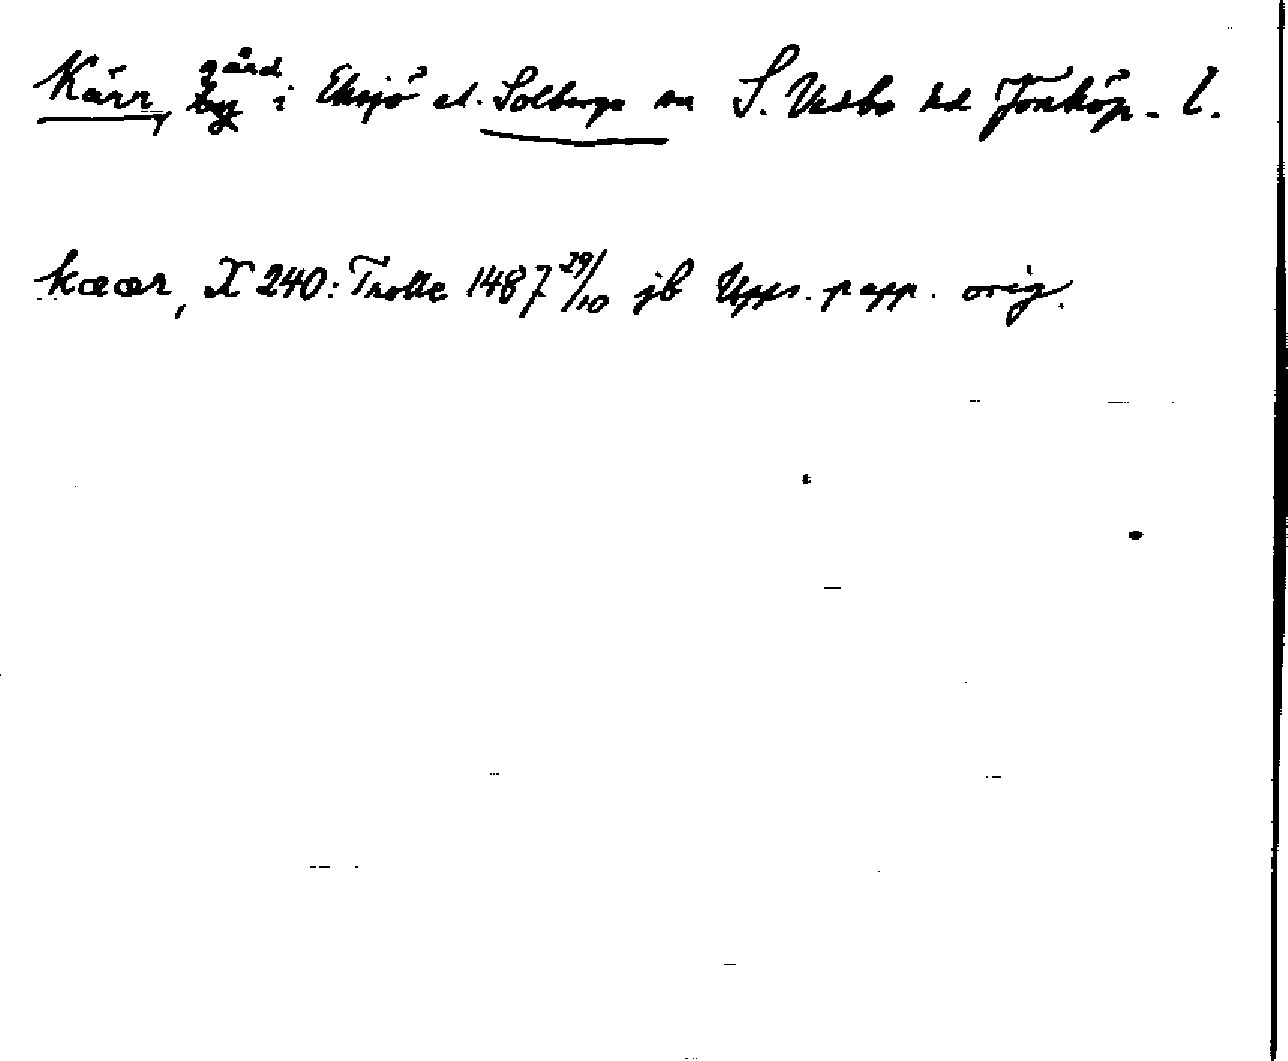 Kärr, gård i Eksjö el. Solberga sn S. Vedbo hd Jönköp. l.
kæær, X 240: Trolle 1487 29/10 jb Upps. papp. orig.